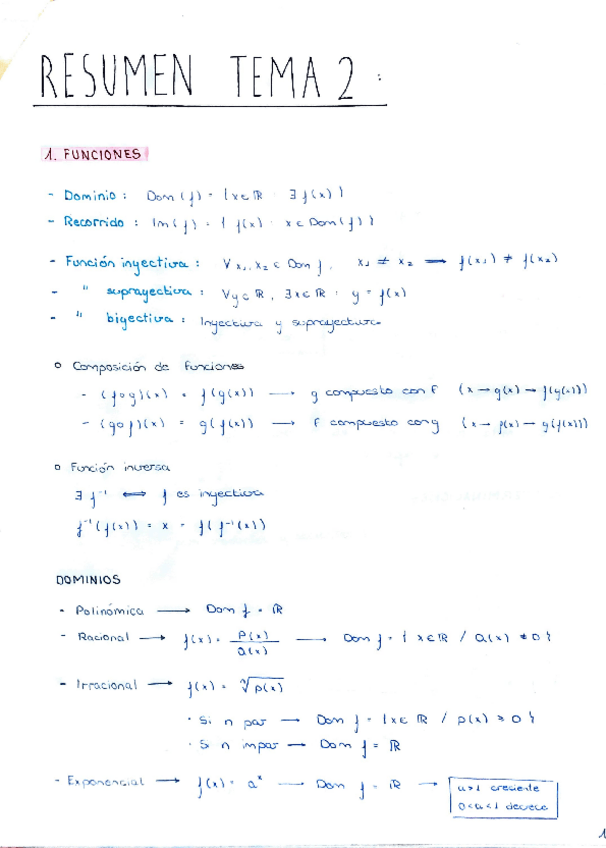 RESUMEN TEMA 2 :
1. FUNCIONES
- Dominio : Dom (f) = { x ∈ ℝ : ∃ f(x) }
- Recorrido : Im (f) = { f(x) : x ∈ Dom (f) }
- Función inyectiva : ∀ x₁, x₂ ∈ Dom f, x₁ ≠ x₂ → f(x₁) ≠ f(x₂)
- " suprayectiva : ∀ y ∈ ℝ, ∃ x ∈ ℝ : y = f(x)
- " biyectiva : Inyectiva y suprayectiva
o Composición de funciones
- (f o g)(x) = f(g(x)) → g compuesto con f (x → g(x) → f(g(x)))
- (g o f)(x) = g(f(x)) → f compuesto con g (x → f(x) → g(f(x)))
o Función inversa
∃ f⁻¹ ⟺ f es inyectiva
f⁻¹(f(x)) = x = f(f⁻¹(x))
DOMINIOS
- Polinómica → Dom f = ℝ
- Racional → f(x) = P(x)/Q(x) → Dom f = { x ∈ ℝ / Q(x) ≠ 0 }
- Irracional → f(x) = ⁿ√p(x)
· Si n par → Dom f = { x ∈ ℝ / p(x) ≥ 0 }
· Si n impar → Dom f = ℝ
- Exponencial → f(x) = aˣ → Dom f = ℝ → a>1 creciente
0<a<1 decrece
1